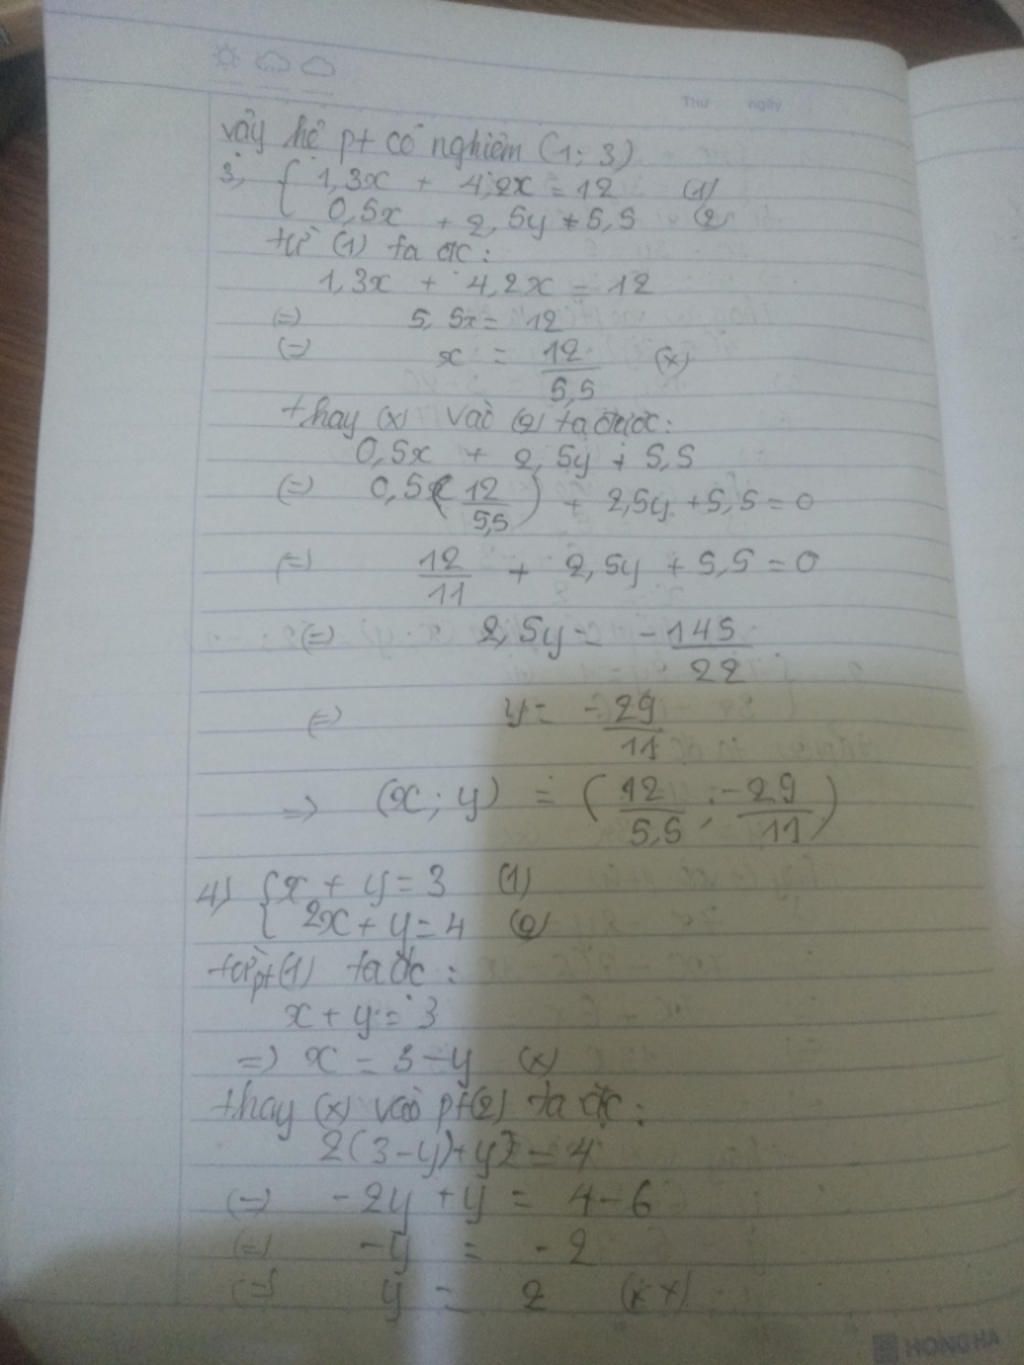 Thứ ngày
vậy hệ pt có nghiệm (1; 3)
3, { 1,3x + 4,2x = 12 (1)
0,5x + 2,5y + 5,5 (2)
từ (1) ta đc:
1,3x + 4,2x = 12
(=) 5,5x = 12
(=) x = 12/5,5 (x)
thay (x) vào (2) ta được:
0,5x + 2,5y + 5,5
(=) 0,5(12/5,5) + 2,5y + 5,5 = 0
(=) 12/11 + 2,5y + 5,5 = 0
(=) 2,5y = -145/22
(=) y = -29/11
=> (x; y) = (12/5,5; -29/11)
4) { x + y = 3 (1)
2x + y = 4 (2)
từ pt(1) ta đc:
x + y = 3
=) x = 3 - y (x)
thay (x) vào pt(2) ta đc:
2(3-y)+y = 4
(=) -2y + y = 4 - 6
(=) -y = -2
(=) y = 2 (xx)
HONG HA